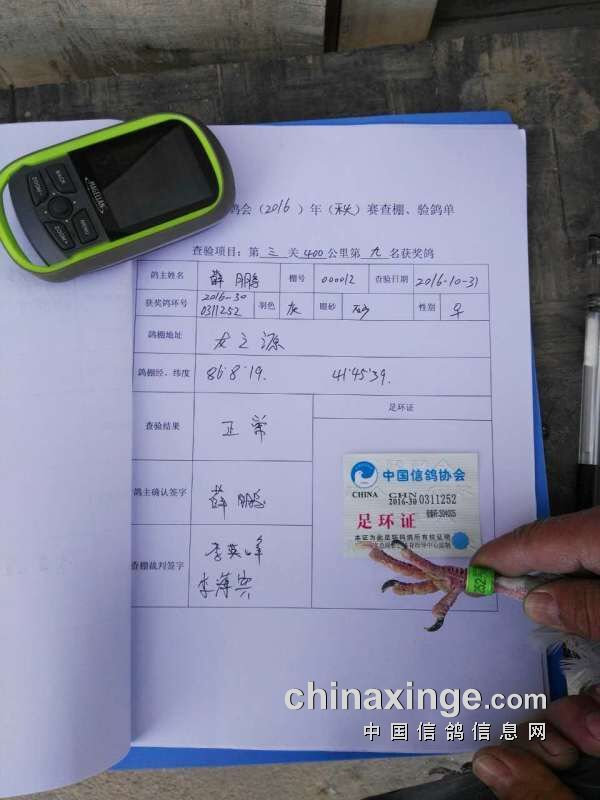 鸽会（2016）年（秩）赛查棚、验鸽单
查验项目：第 三 关 400 公里第 九 名获奖鸽
鸽主姓名 薛鹏 棚号 000012 查验日期 2016-10-31
获奖鸽环号 2016-30 0311252 羽色 灰 眼砂 性别 早
鸽棚地址 友之源
鸽棚经、纬度 86°8'19. 41°45'39.
查验结果 正常
足环证
鸽主确认签字 薛鹏
查棚裁判签字 李英峰
李
中国信鸽协会
CHINA CHN
2016-30 0311252
足环证
本证为此足环信鸽所有权证明
MAGELLAN
ZOOM+
BACK
ZOOM-
MENU
chinaxinge.com
中国信鸽信息网